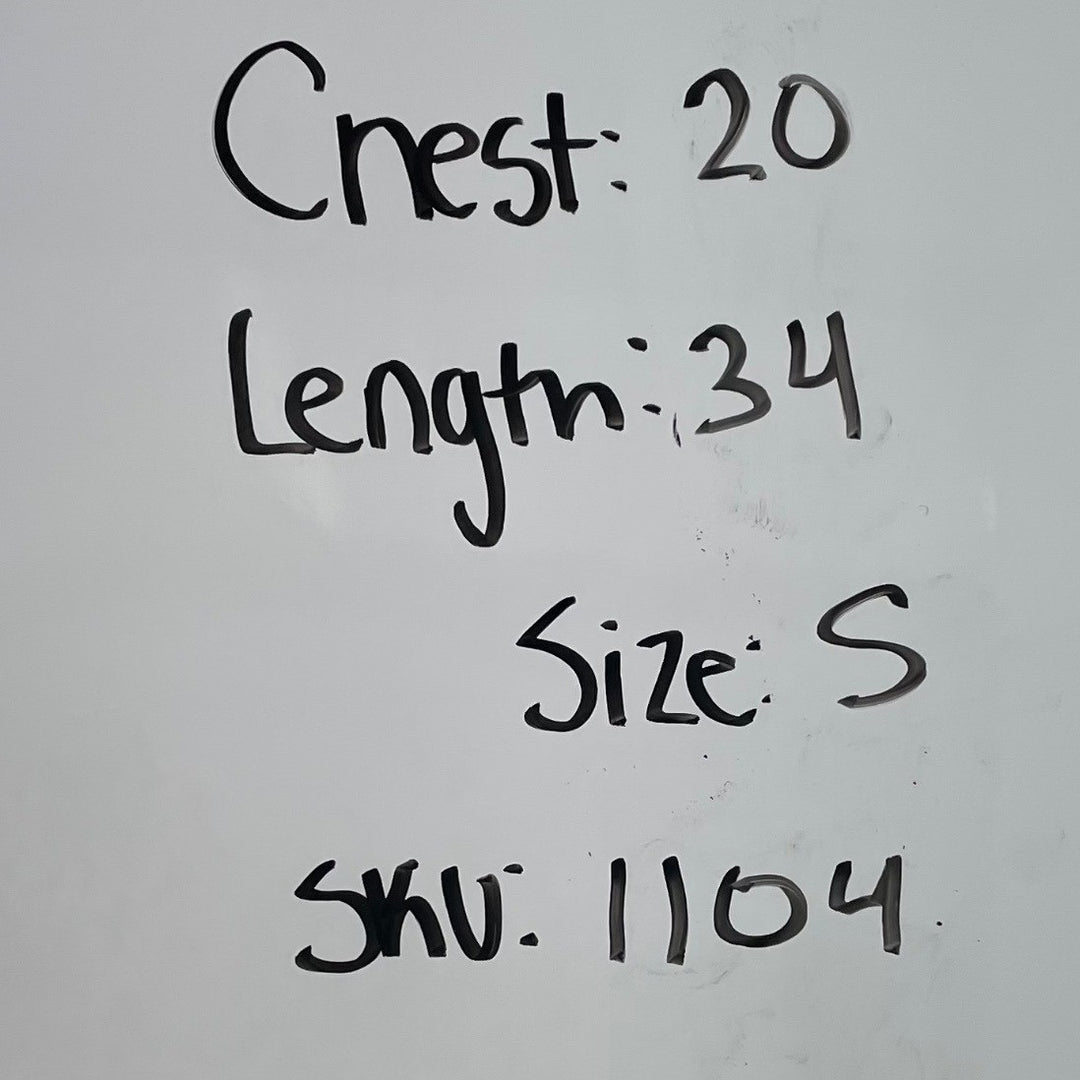 Chest: 20
Length: 34
Size: S
SKU: 1104